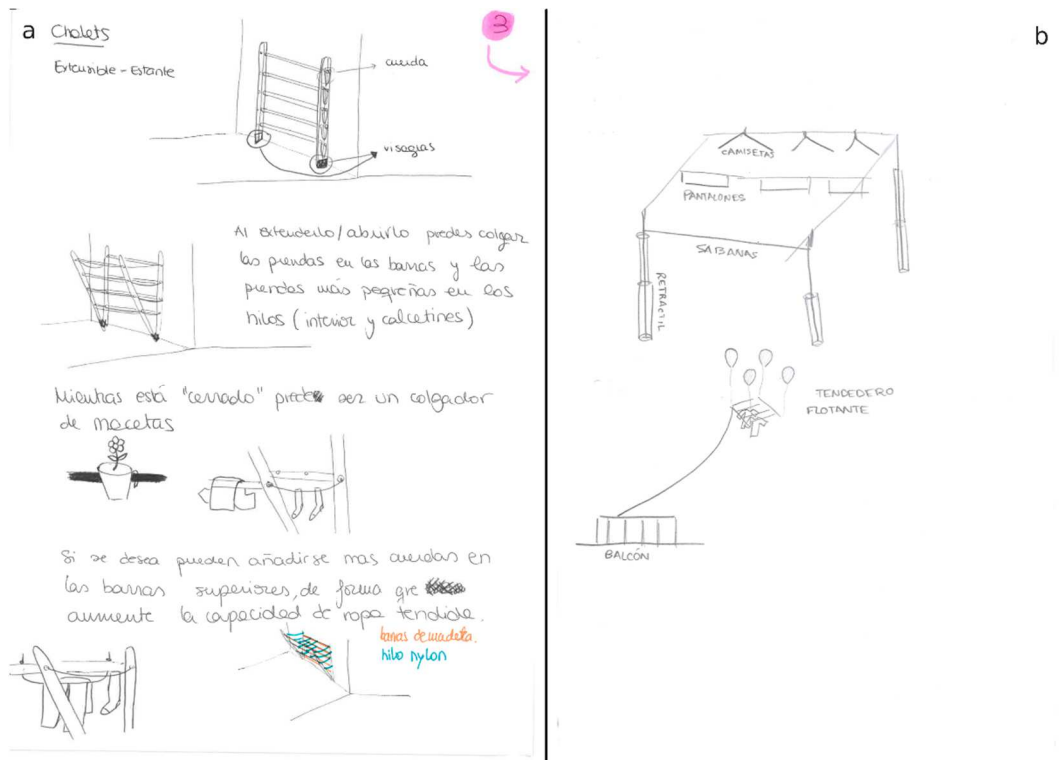 a
Chalets
3
Extensible - Estante
cuerda
visagras
Al extenderlo/abrirlo puedes colgar
las prendas en las barras y las
prendas más pequeñas en los
hilos (interior y calcetines)
Mientras está "cerrado" puede ser un colgador
de macetas
Si se desea pueden añadirse mas cuerdas en
las barras superiores, de forma que
aumente la capacidad de ropa tendida.
barras de madera.
hilo nylon
b
CAMISETAS
PANTALONES
SABANAS
RETRACTIL
TENDEDERO
FLOTANTE
BALCÓN